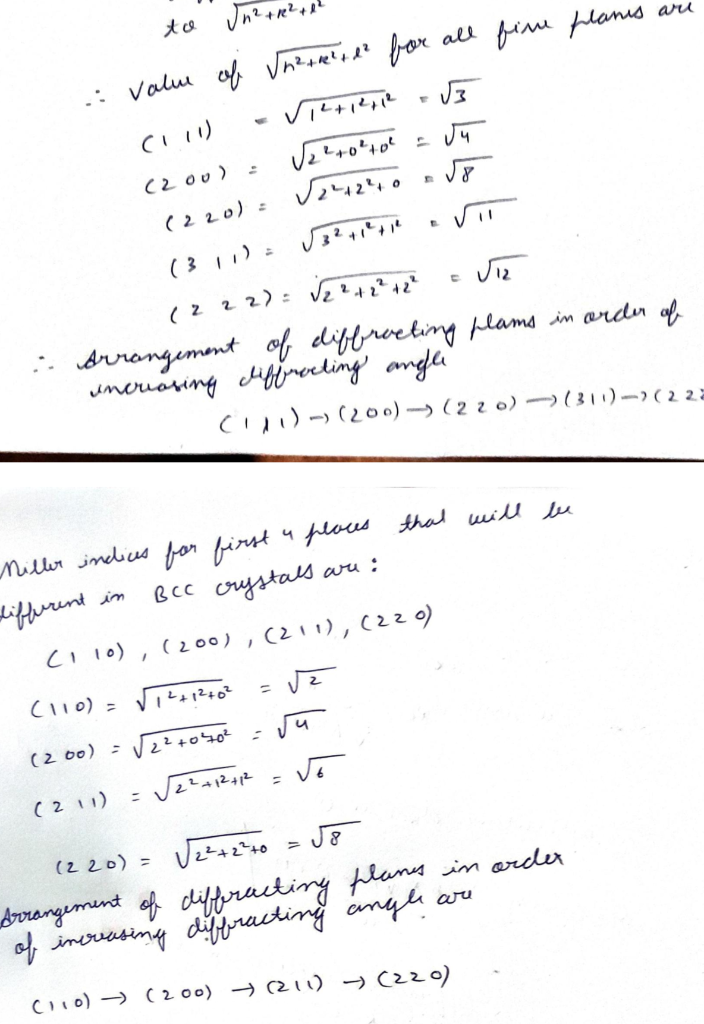 to √h²+k²+l²
∴ value of √h²+k²+l² for all five planes are
(1 1 1) = √1²+1²+1² = √3
(2 0 0) = √2²+0²+0² = √4
(2 2 0) = √2²+2²+0 = √8
(3 1 1) = √3²+1²+1² = √11
(2 2 2) = √2²+2²+2² = √12
∴ Arrangement of diffracting planes in order of
increasing diffracting angle
(1 1 1) → (2 0 0) → (2 2 0) → (3 1 1) → (2 2 2
Miller indices for first 4 places that will be
different in BCC crystals are :
(1 1 0) , (2 0 0) , (2 1 1) , (2 2 0)
(1 1 0) = √1²+1²+0² = √2
(2 0 0) = √2²+0²+0² = √4
(2 1 1) = √2²+1²+1² = √6
(2 2 0) = √2²+2²+0 = √8
Arrangement of diffracting planes in order
of increasing diffracting angle are
(1 1 0) → (2 0 0) → (2 1 1) → (2 2 0)